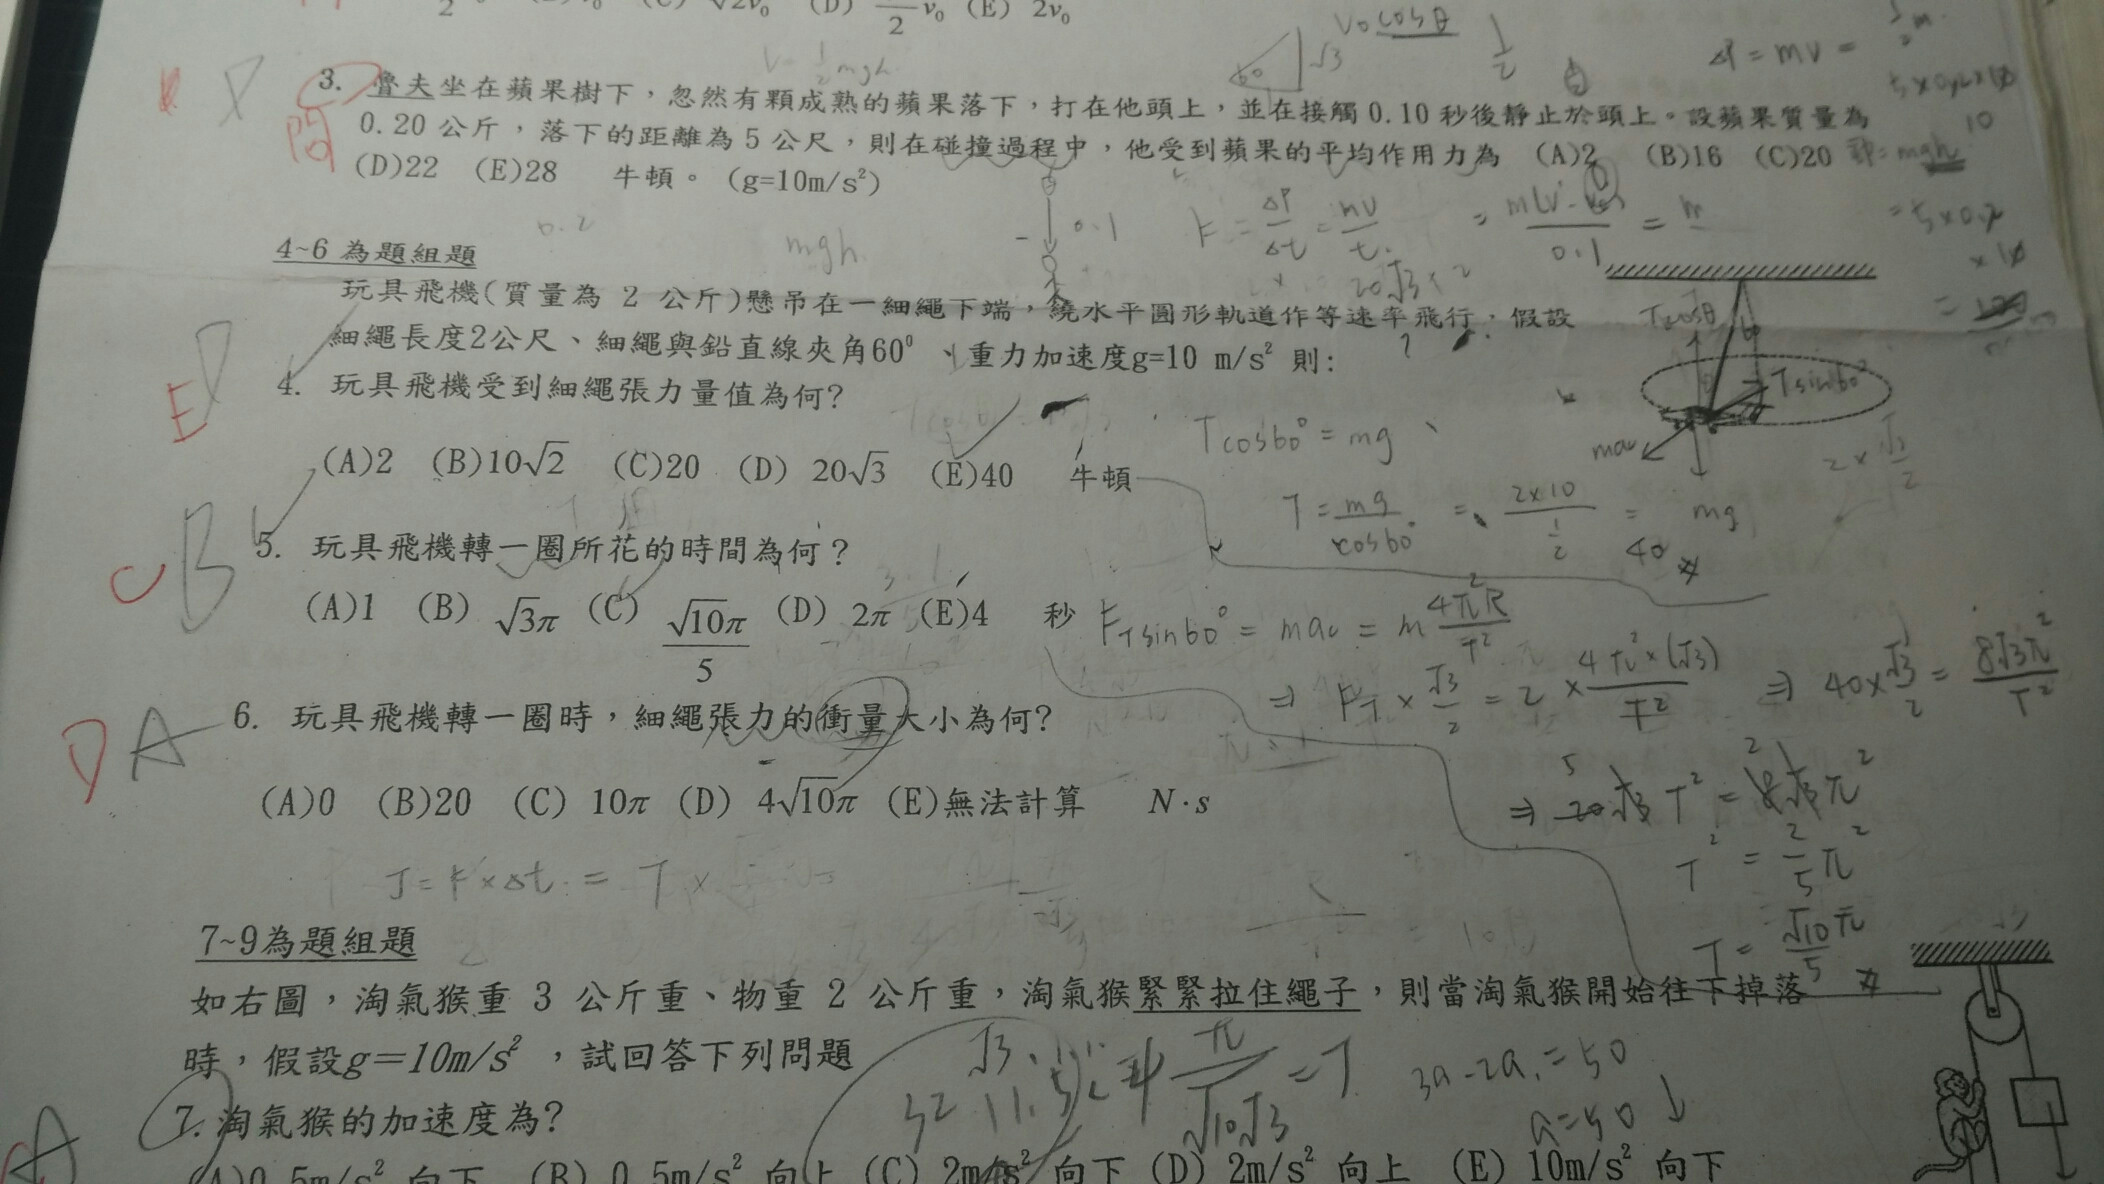 (D) v₀ (E) 2v₀
2
3. 魯夫坐在蘋果樹下，忽然有顆成熟的蘋果落下，打在他頭上，並在接觸0.10秒後靜止於頭上。設蘋果質量為
問 0.20公斤，落下的距離為5公尺，則在碰撞過程中，他受到蘋果的平均作用力為 (A)2 (B)16 (C)20
(D)22 (E)28 牛頓。(g=10m/s²)
V₀cosθ
√3
60
1/2
ΔP = mv =
0.2
mgh
0.1
F = ΔP/Δt = mv/t
0.1
= 5×0.2
×10
4~6為題組題
玩具飛機(質量為 2 公斤)懸吊在一細繩下端，繞水平圓形軌道作等速率飛行，假設
細繩長度2公尺、細繩與鉛直線夾角60⁰、重力加速度g=10 m/s² 則:
E
4. 玩具飛機受到細繩張力量值為何?
(A)2 (B)10√2 (C)20 (D) 20√3 (E)40 牛頓
Tcos60° = mg
T = mg/cos60° = 2×10/(1/2) = 40
Tcosθ
Tsin60°
mac
mg
2×√3/2
C B
5. 玩具飛機轉一圈所花的時間為何？
(A)1 (B) √3π (C) √10π/5 (D) 2π (E)4 秒
F_T sin60° = mac = m 4π²R/T²
⇒ F_T × √3/2 = 2 × 4π²×(√3)/T² ⇒ 40×√3/2 = 8√3π²/T²
⇒ 20√3 T² = 8√3π²
T² = 2/5 π²
T = √10π/5
D A
6. 玩具飛機轉一圈時，細繩張力的衝量大小為何?
(A)0 (B)20 (C) 10π (D) 4√10π (E)無法計算 N·s
J = F×Δt = T×
7~9為題組題
如右圖，淘氣猴重 3 公斤重、物重 2 公斤重，淘氣猴緊緊拉住繩子，則當淘氣猴開始往下掉落
時，假設g=10m/s²，試回答下列問題
π/√10√3 = T
3a-2a₁=50
a=50 ↓
A
7. 淘氣猴的加速度為?
(A)0.5m/s² 向下 (B) 0.5m/s² 向上 (C) 2m/s² 向下 (D) 2m/s² 向上 (E) 10m/s² 向下